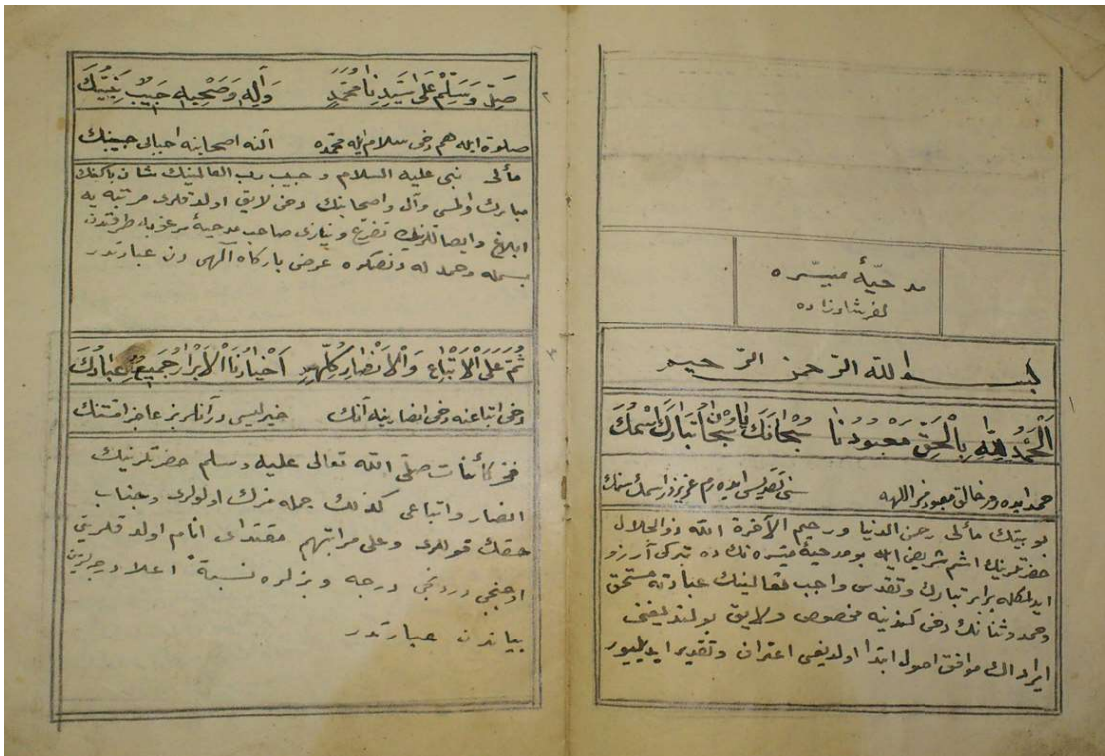 مدحيّۀ ميسّره
لفرشادزاده
بسم الله الرّحمن الرّحيم
اَلْحَمْدُ لِلّهِ بِالْحَقِّ مَعْبُودُنَا سُبْحَانَكَ سُبْحَا تَبَارَكَ اسْمُكَ
حمد ايده ور خالق معبودمز اللهه سنى تقديس ايده رم عزيزدر اسمك سنك
بو بيتك مألى رحمن الدنيا ورحيم الآخرة الله ذوالجلال
حضرتلرينك اسم شريفى ايله بو مدحيۀ ميسره نك ده تبركى آرزو
ايدلمكله برابر تبارك وتقدس واجب تعالينك عبادته مستحق
وحمد وثنانك دخى كندينه مخصوص ولايق بولنديغنى
ايراد موافق اصول ابتدا اولديغنى اعتراف وتقدير ايديليور
صَلِّ وَسَلِّمْ عَلَى سَيِّدِنَا مُحَمَّدٍ وَآلِهِ وَصَحْبِهِ حَبِيبٌ نَبِيُّكَ
صلوة ايله هم دخى سلام ايله محمده آلنه اصحابنه احبابى حبيبك
مألى نبى عليه السلام وحبيب رب العالمينك شان پاكنك
مبارك اولمسى وآل واصحابنك دخى لايق اولدقلرى مرتبه يه
ابلاغ وايصاللرينك تضرع ونيازى صاحب مدحيۀ مرغوبه طرفندن
بسمله وحمدله دنصكره عرض بارگاه آلهى دن عبارتدر
ثُمَّ عَلَى الْاَتْبَاعِ وَالْاَنْصَارِ كُلِّهِمْ اَخْيَارُنَا الْاَبْرَارُ جَمِيعُ عِبَادِكَ
دخى اتباعنه دخى انصارينه آنك خيرليسى در آنلر بز عاجز امتنك
فخر كائنات صلّى الله تعالى عليه وسلم حضرتلرينك
انصار واتباعى كذلك جمله مزك اولولرى وجناب
حقك قوللرى وعلى مراتبهم مقتداى انام اولدقلرينى
اوچنجى دردنجى درجه و بزلره نسبةً اعلا درجه لرين
بياندن عبارتدر